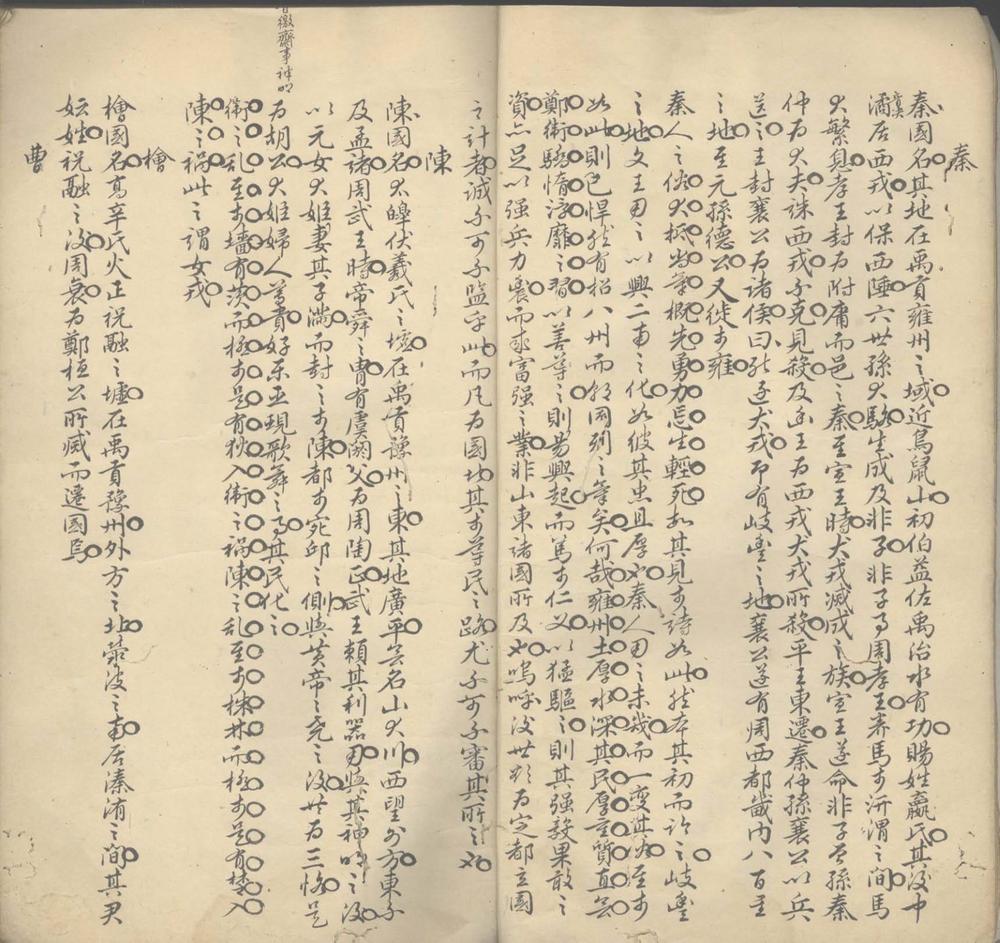 秦
秦國名其地在禹貢雍州之域近鳥鼠山初伯益佐禹治水有功賜姓嬴氏其後中
潏居西戎以保西陲六世孫大駱生成及非子非子事周孝王養馬於汧渭之間馬
大繁息孝王封為附庸而邑之秦至宣王時犬戎滅成之族宣王遂命非子曾孫秦
仲為大夫誅西戎不克見殺及幽王為西戎犬戎所殺平王東遷秦仲孫襄公以兵
送之王封襄公為諸侯曰能逐犬戎即有岐豐之地襄公遂有周西都畿內八百里
之地至元孫德公又徙於雍
秦人之俗大抵尚氣概先勇力忘生輕死故其見於詩如此然本其初而論之岐豐
之地文王用之以興二南之化如彼其忠且厚也秦人用之未幾而一變其俗至於
如此則已悍然有招八州而朝同列之氣矣何哉雍州土厚水深其民厚重質直無
鄭衛驕惰浮靡之習以善導之則易興起而篤於仁義以猛驅之則其強毅果敢之
資亦足以强兵力農而成富强之業非山東諸國所及也嗚呼後世欲為定都立國
之計者誠不可不監乎此而凡為國者其於導民之路尤不可不審其所之也
陳
陳國名太皥伏羲氏之墟在禹貢豫州之東其地廣平無名山大川西望外方東不
及孟諸周武王時帝舜之冑有虞閼父為周陶正武王賴其利器用與其神明之後
以元女大姬妻其子滿而封之於陳都於宛邱之側與黄帝之堯之後共為三恪是
為胡公大姬婦人尊貴好樂巫覡歌舞之事其民化之
衛之乱至於墻有茨而極於是有狄入衛之禍陳之乱至於株林而極於是有楚入
陳之禍此之謂女戎
檜
檜國名高辛氏火正祝融之墟在禹貢豫州外方之北滎波之南居溱洧之間其君
妘姓祝融之後周衰為鄭桓公所滅而遷國焉
曹